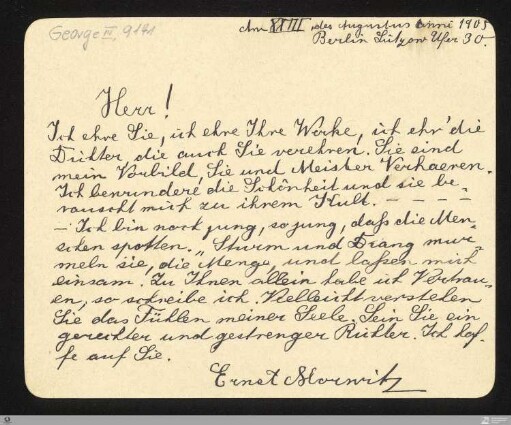 George III, 9141
Am XXIII des Augustus Anni 1905
Berlin Lützow Ufer 30.
Herr!
Ich ehre Sie, ich ehre Ihre Werke, ich ehr' die
Dichter, die auch Sie verehren. Sie sind
mein Vorbild, Sie und Meister Verhaeren.
Ich bewundere die Schönheit und sie be-
rauscht mich zu ihrem Kult. – – – –
– Ich bin noch jung, so jung, dass die Men-
schen spotten. „Sturm und Drang mur-
meln sie, die Menge, und lassen mich
einsam. Zu Ihnen allein habe ich Vertrau-
en, so schreibe ich. Vielleicht verstehen
Sie das Fühlen meiner Seele. Sein Sie ein
gerechter und gestrenger Richter. Ich hof-
fe auf Sie.
Ernst Morwitz